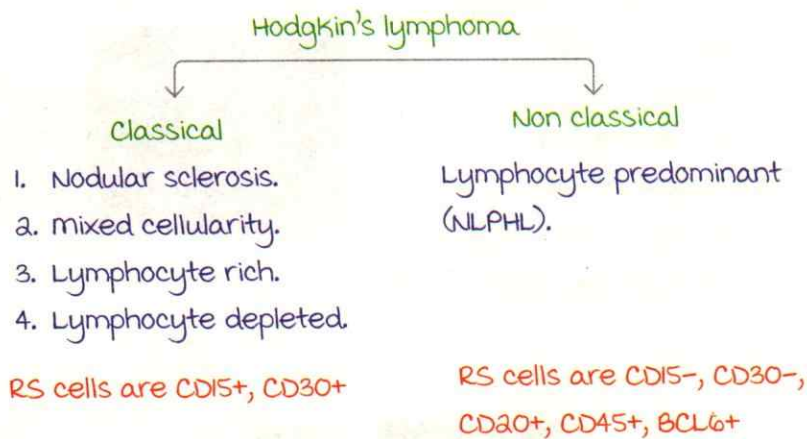 Hodgkin's lymphoma
Classical
1. Nodular sclerosis.
2. mixed cellularity.
3. Lymphocyte rich.
4. Lymphocyte depleted.
RS cells are CD15+, CD30+
Non classical
Lymphocyte predominant
(NLPHL).
RS cells are CD15-, CD30-,
CD20+, CD45+, BCL6+